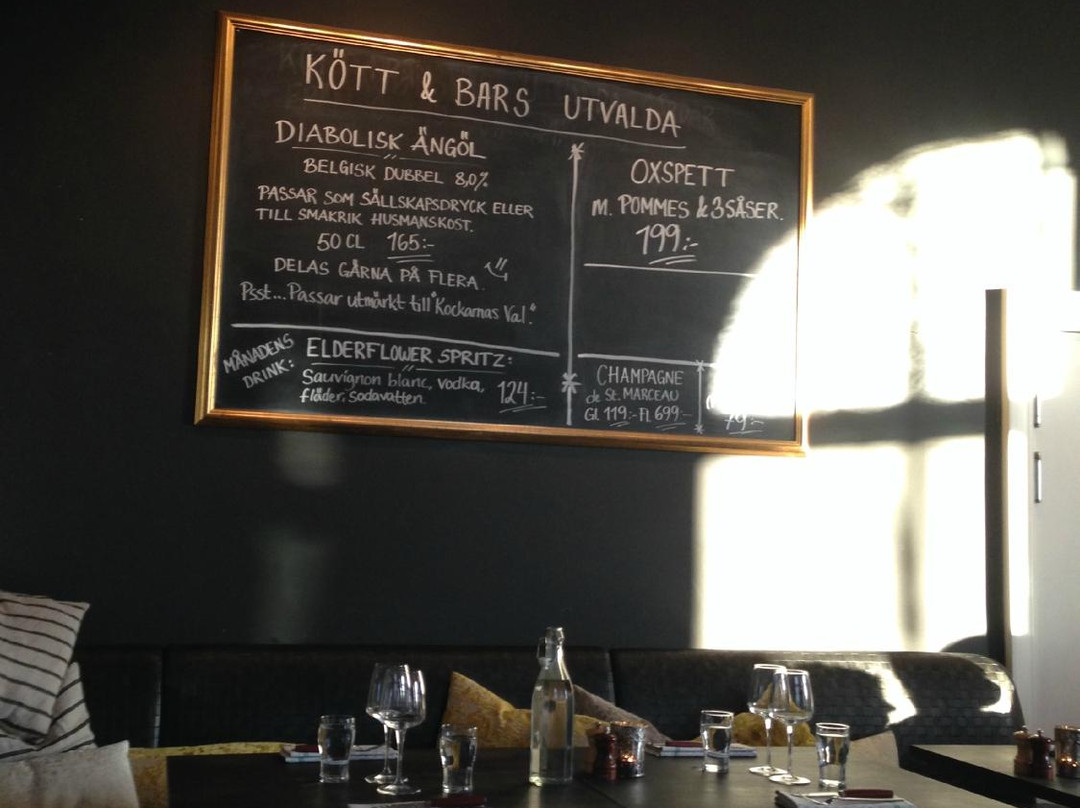 KÖTT & BARS UTVALDA
DIABOLISK ÄNGÖL
BELGISK DUBBEL 8,0%
PASSAR SOM SÄLLSKAPSDRYCK ELLER
TILL SMAKRIK HUSMANSKOST.
50 CL 165:-
DELAS GÄRNA PÅ FLERA.
Psst...Passar utmärkt till "Kockarnas Val."
MÅNADENS
DRINK:
ELDERFLOWER SPRITZ:
Sauvignon blanc, vodka,
fläder, sodavatten.
124:-
OXSPETT
M. POMMES & 3 SÅSER.
199:-
CHAMPAGNE
de St. MARCEAU
GL 119:- FL 699:-
79:-